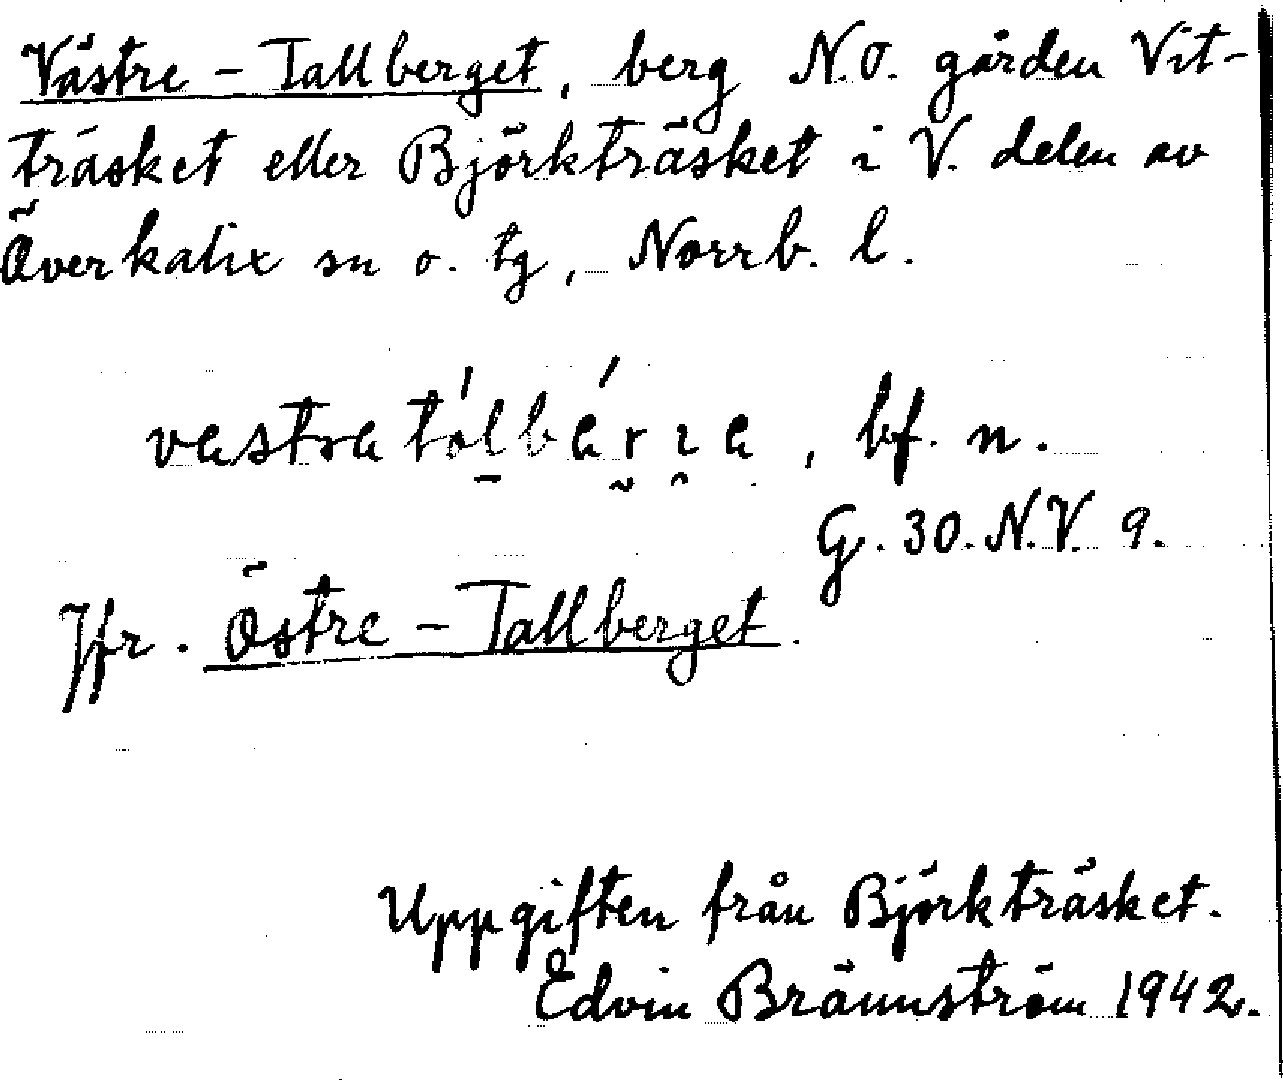 Västre-Tallberget, berg N.O. gården Vit-
träsket eller Björkträsket i V. delen av
Överkalix sn o. tg, Norrb. l.
bf. n.
G. 30. N.V. 9.
Jfr. Östre-Tallberget.
Uppgiften från Björkträsket.
Edvin Brännström 1942.